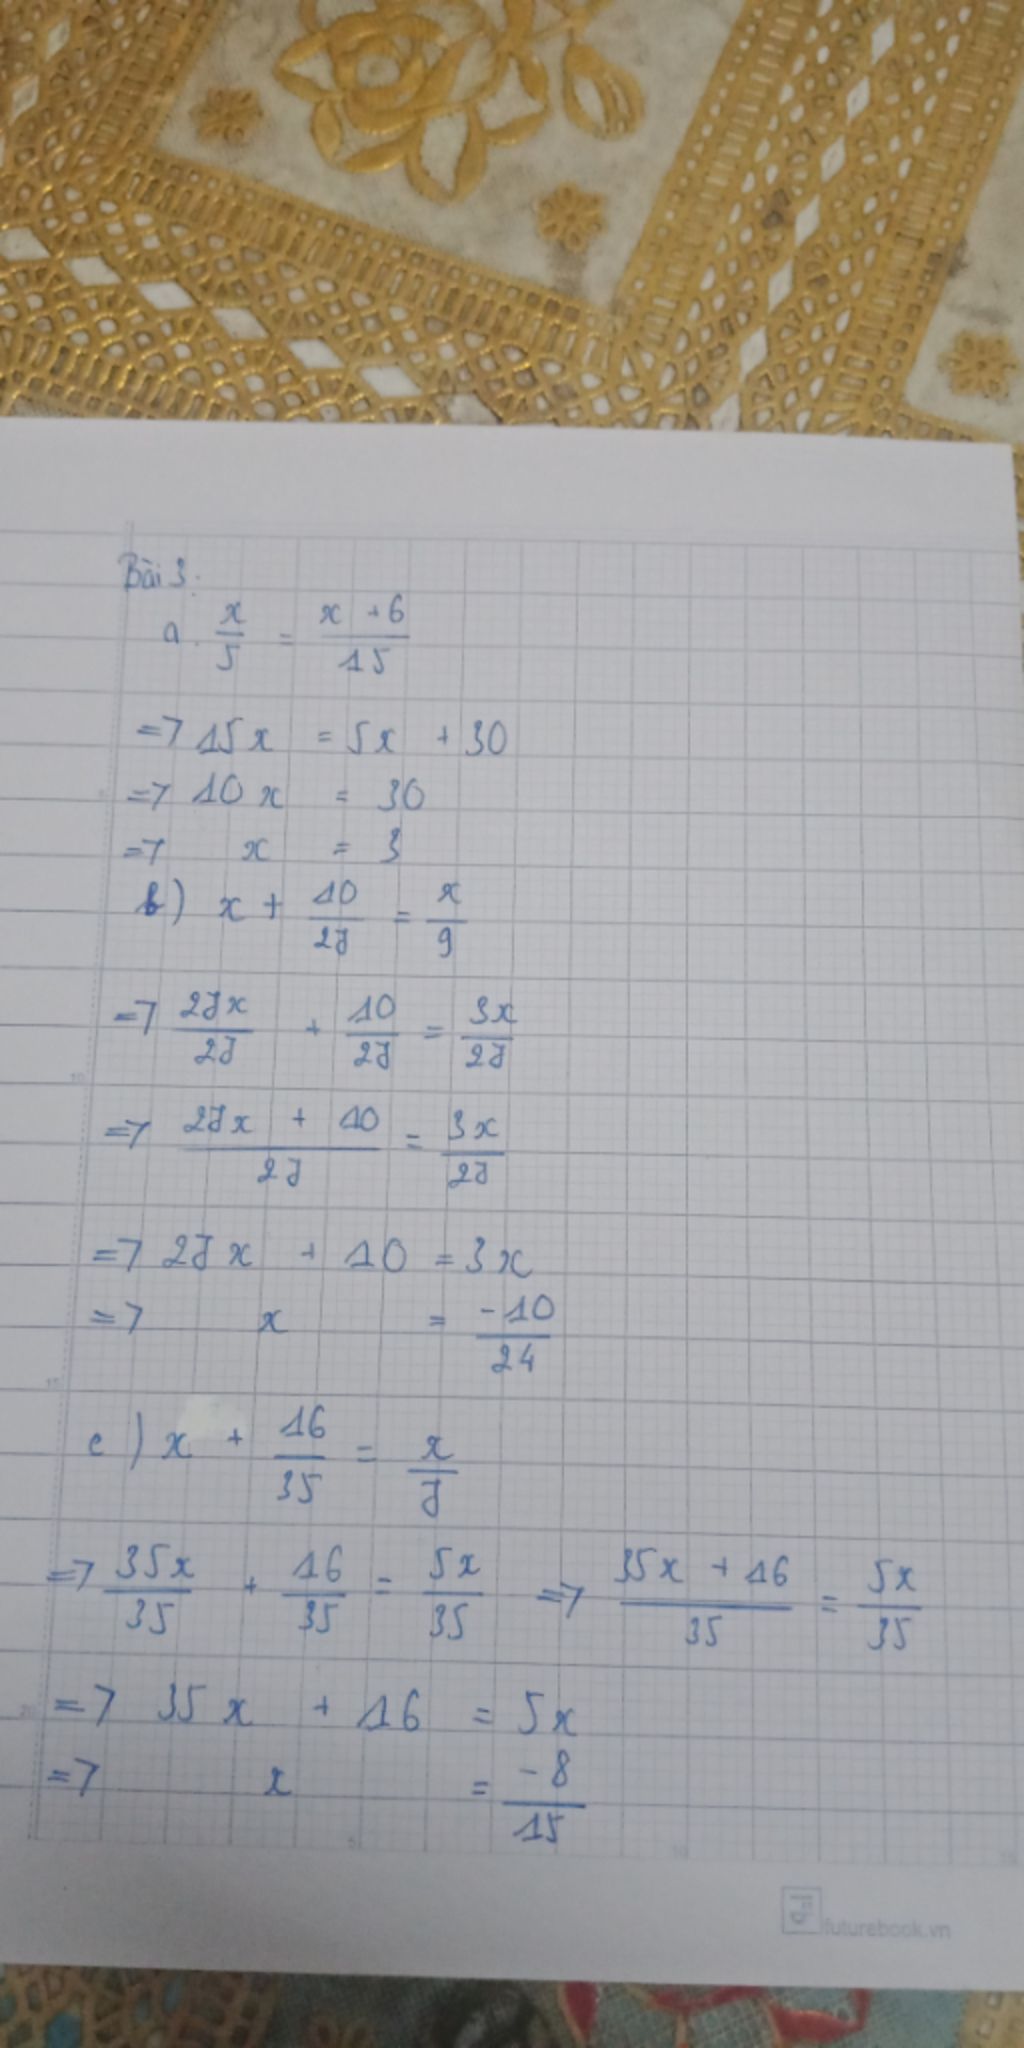 Bài 3.
a. x/5 = (x + 6)/15
=> 15x = 5x + 30
=> 10x = 30
=> x = 3
b) x + 10/27 = x/9
=> 27x/27 + 10/27 = 3x/27
=> (27x + 10)/27 = 3x/27
=> 27x + 10 = 3x
=> x = -10/24
c) x + 16/35 = x/7
=> 35x/35 + 16/35 = 5x/35 => (35x + 16)/35 = 5x/35
=> 35x + 16 = 5x
=> x = -8/15
futurebook.vn